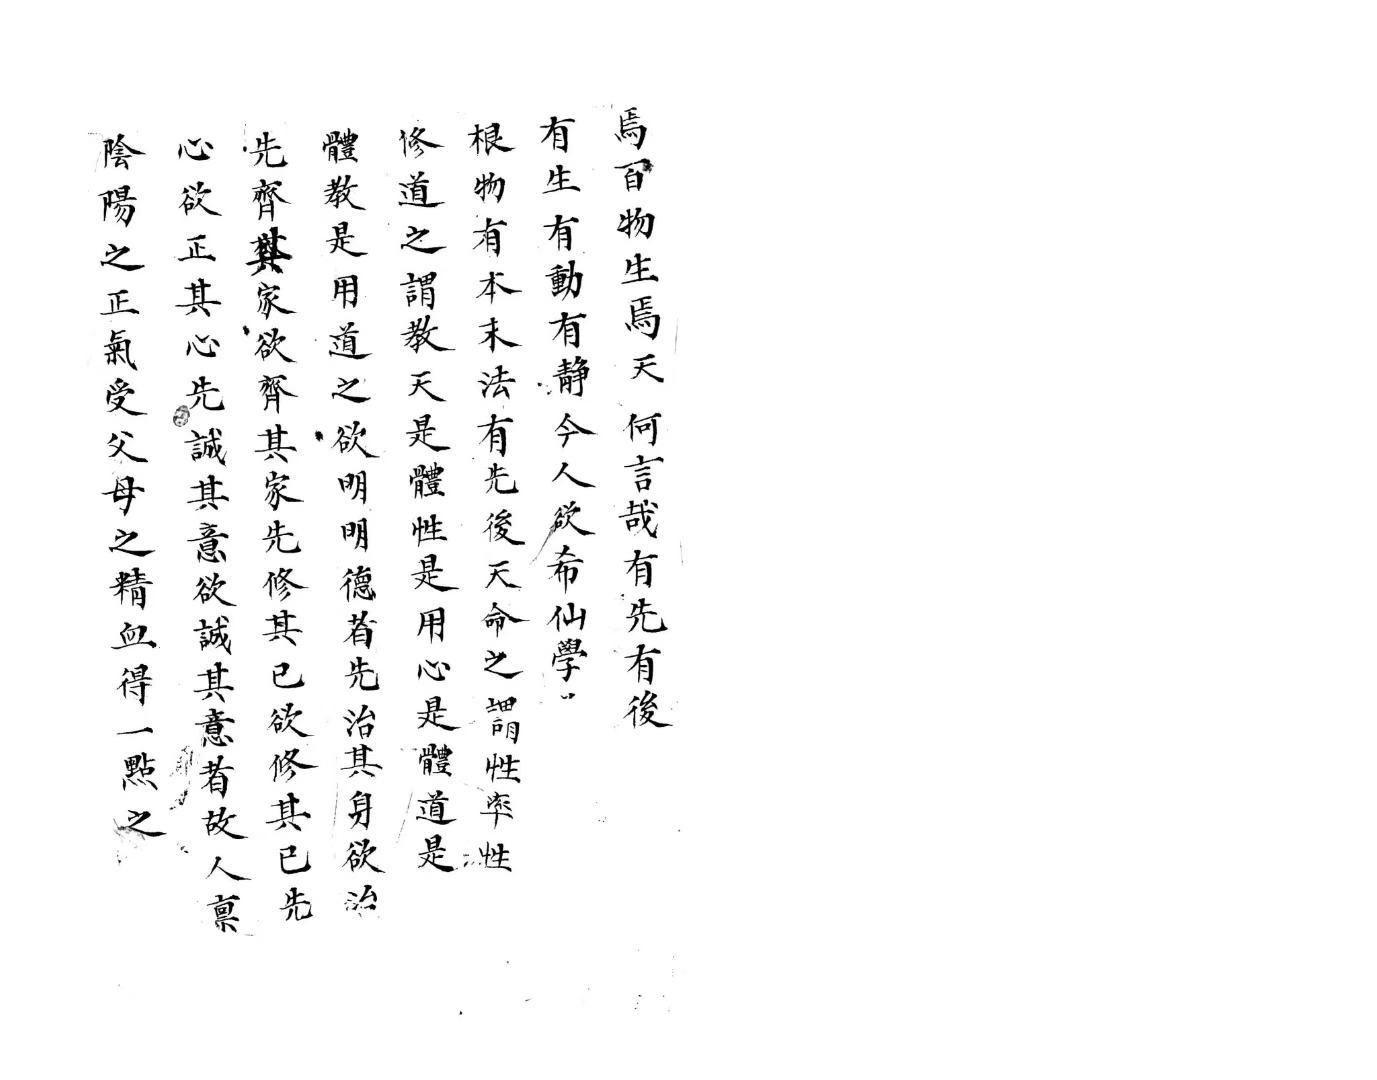 焉百物生焉天何言哉有先有後
有生有動有静今人欲希仙學
根物有本末法有先後天命之謂性率性
修道之謂教天是體性是用心是體道是
體教是用道之欲明明德者先治其身欲治
先齊其家欲齊其家先修其已欲修其已先
心欲正其心先誠其意欲誠其意者故人禀
陰陽之正氣受父母之精血得一點之